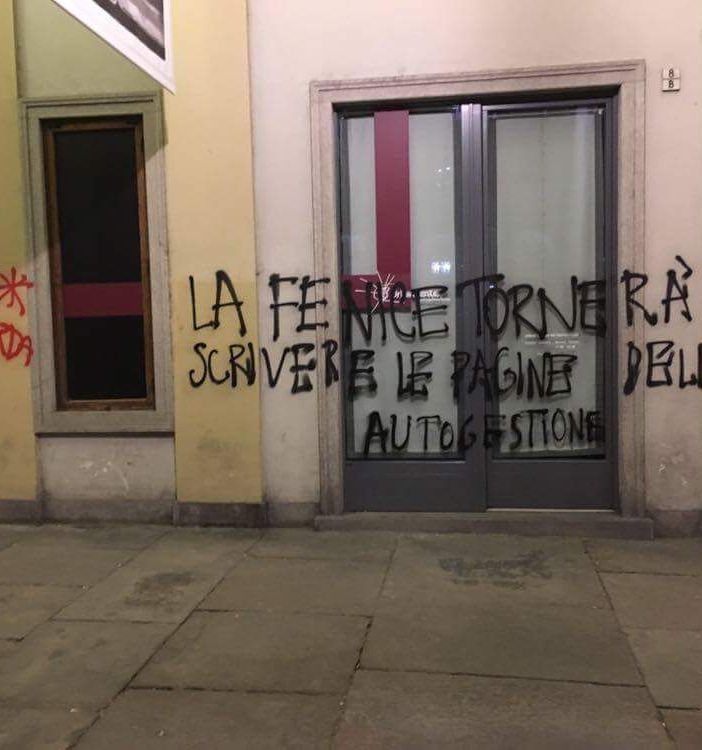 LA FENICE TORNERÀ
SCRIVERE LE PAGINE DELL
AUTOGESTIONE
8
B